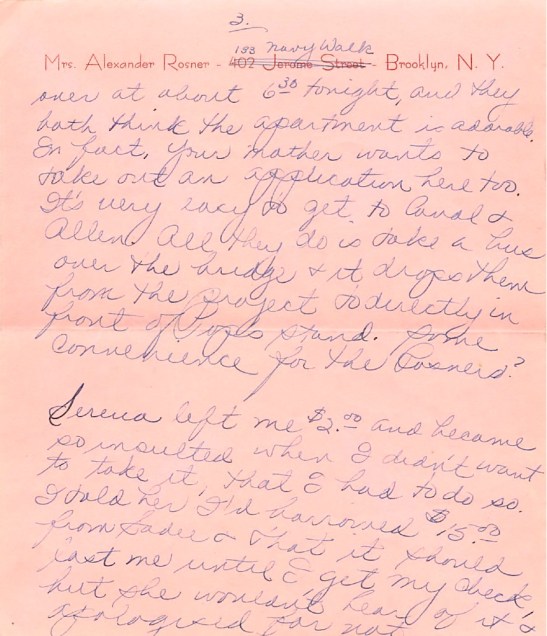 3.
133 Navy Walk
Mrs. Alexander Rosner - 402 Jerome Street - Brooklyn, N. Y.
over at about 6³⁰ tonight, and they
both think the apartment is adorable.
In fact, your mother wants to
take out an application here too.
It's very easy to get to Canal &
Allen. All they do is take a bus
over the bridge & it drops them
from the project to directly in
front of Pop's stand. Some
convenience for the Rosners?
Serena left me $2.00 and became
so insulted when I didn't want
to take it, that I had to do so.
I told her I'd borrowed $15.00
from Sadie & that it should
last me until I get my check,
but she wouldn't hear of it &
apologized for not